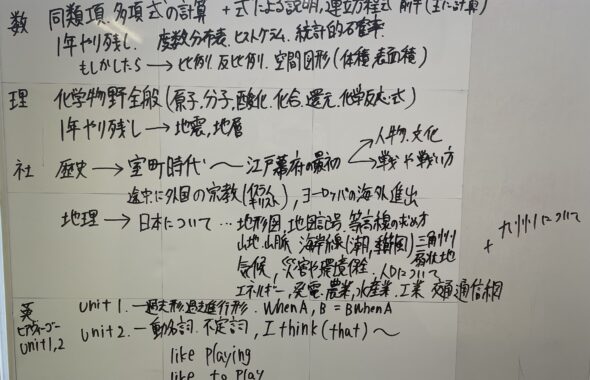 数 同類項、多項式の計算 + 式による説明、連立方程式 前半(主に計算)
1年やり残し、度数分布表、ヒストグラム、統計的確率
もしかしたら → 比例、反比例、空間図形(体積、表面積)
理 化学分野全般(原子、分子、酸化、化合、還元、化学反応式)
1年やり残し → 地震、地層
社 歴史 → 室町時代 〜 江戸幕府の最初 → 人物、文化
→ 戦や戦い方
途中に外国の宗教(イスラム キリスト)、ヨーロッパの海外進出
地理 → 日本について … 地形図、地図記号、等高線の求め方
山地、山脈、海岸線(潮、) 三角州 扇状地 + 九州について
気候、災害や環境保全、人口について
エネルギー、発電、農業、水産業、工業 交通通信網
英 unit1. 一過去形、過去進行形. When A, B = B When A
unit1,2 unit2. 一動名詞、不定詞, I think (that) 〜
like playing
like to play